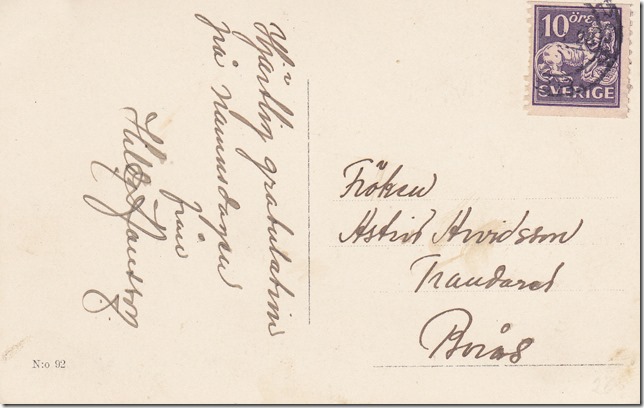 Hjärtlig gratulation
på Namnsdagen
från
Hilda Jansson
10 öre
SVERIGE
Fröken
Astrid Arvidsson
Trandared
Borås
N:o 92